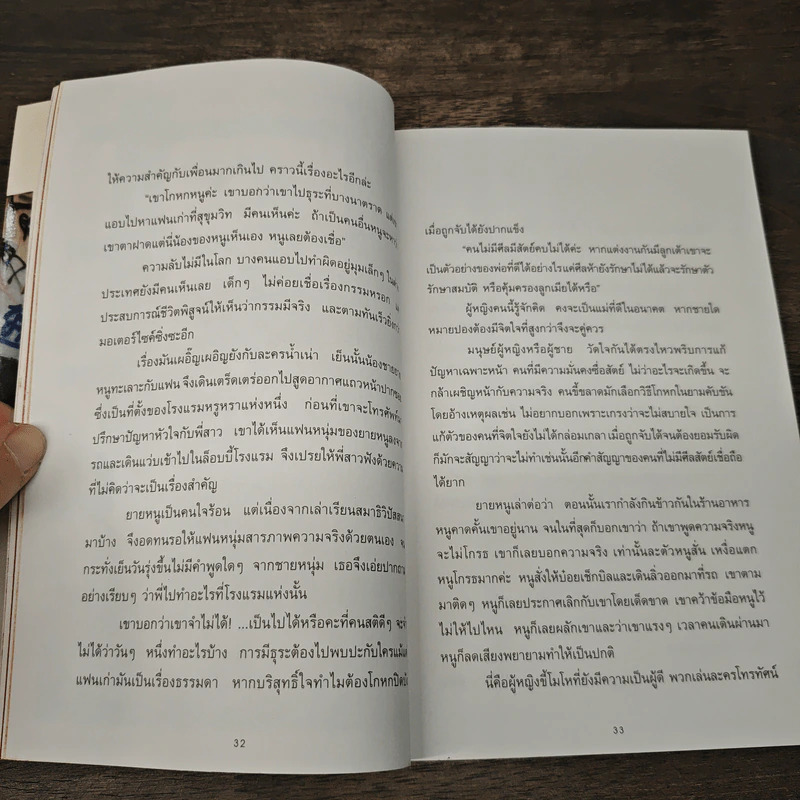 ให้ความสำคัญกับเพื่อนมากเกินไป คราวนี้เรื่องอะไรอีกล่ะ
"เขาโกหกหนูค่ะ เขาบอกว่าเขาไปธุระที่บางนาตราด
แอบไปหาแฟนเก่าที่สุขุมวิท มีคนเห็นค่ะ ถ้าเป็นคนอื่นหนูจะหาว่า
เขาตาฝาดแต่นี่น้องของหนูเห็นเอง หนูเลยต้องเชื่อ"
ความลับไม่มีในโลก บางคนแอบไปทำผิดอยู่มุมเล็กๆ
ประเทศยังมีคนเห็นเลย เด็กๆ ไม่ค่อยเชื่อเรื่องกรรมหรอก
ประสบการณ์ชีวิตพิสูจน์ให้เห็นว่ากรรมมีจริง และตามทันเร็วยิ่งกว่า
มอเตอร์ไซค์ซิ่งซะอีก
เรื่องมันเผอิ๊ญเผอิญยังกับละครน้ำเน่า เย็นนั้นน้องชาย
หนูทะเลาะกับแฟน จึงเดินเตร็ดเตร่ออกไปสูดอากาศแถวหน้าปากซอย
ซึ่งเป็นที่ตั้งของโรงแรมหรูหราแห่งหนึ่ง ก่อนที่เขาจะโทรศัพท์
ปรึกษาปัญหาหัวใจกับพี่สาว เขาได้เห็นแฟนหนุ่มของยายหนูลงจาก
รถและเดินแว่บเข้าไปในล็อบบี้โรงแรม จึงเปรยให้พี่สาวฟังด้วยความ
ที่ไม่คิดว่าจะเป็นเรื่องสำคัญ
ยายหนูเป็นคนใจร้อน แต่เนื่องจากเล่าเรียนสมาธิวิปัสสนา
มาบ้าง จึงอดทนรอให้แฟนหนุ่มสารภาพความจริงด้วยตนเอง
กระทั่งเย็นวันรุ่งขึ้นไม่มีคำพูดใดๆ จากชายหนุ่ม เธอจึงเอ่ยปากถาม
อย่างเรียบๆ ว่าพี่ไปทำอะไรที่โรงแรมแห่งนั้น
เขาบอกว่าเขาจำไม่ได้! ...เป็นไปได้หรือคะที่คนสติดีๆ จะจำ
ไม่ได้ว่าวันๆ หนึ่งทำอะไรบ้าง การมีธุระต้องไปพบปะกับใครแม้แต่
แฟนเก่ามันเป็นเรื่องธรรมดา หากบริสุทธิ์ใจทำไมต้องโกหกปิดบัง
32
เมื่อถูกจับได้ยังปากแข็ง
"คนไม่มีศีลมีสัตย์คบไม่ได้ค่ะ หากแต่งงานกันมีลูกเต้าเขาจะ
เป็นตัวอย่างของพ่อที่ดีได้อย่างไรแค่ศีลห้ายังรักษาไม่ได้แล้วจะรักษาตัว
รักษาสมบัติ หรือคุ้มครองลูกเมียได้หรือ"
ผู้หญิงคนนี้รู้จักคิด คงจะเป็นแม่ที่ดีในอนาคต หากชายใด
หมายปองต้องมีจิตใจที่สูงกว่าจึงจะคู่ควร
มนุษย์ผู้หญิงหรือผู้ชาย วัดใจกันได้ตรงไหวพริบการแก้
ปัญหาเฉพาะหน้า คนที่มีความมั่นคงซื่อสัตย์ ไม่ว่าอะไรจะเกิดขึ้น จะ
กล้าเผชิญหน้ากับความจริง คนขี้ขลาดมักเลือกวิธีโกหกในยามคับขัน
โดยอ้างเหตุผลเช่น ไม่อยากบอกเพราะเกรงว่าจะไม่สบายใจ เป็นการ
แก้ตัวของคนที่จิตใจยังไม่ได้กล่อมเกลา เมื่อถูกจับได้จนต้องยอมรับผิด
ก็มักจะสัญญาว่าจะไม่ทำเช่นนั้นอีกคำสัญญาของคนที่ไม่มีศีลสัตย์เชื่อถือ
ได้ยาก
ยายหนูเล่าต่อว่า ตอนนั้นเรากำลังกินข้าวกันในร้านอาหาร
หนูคาดคั้นเขาอยู่นาน จนในที่สุดก็บอกเขาว่า ถ้าเขาพูดความจริงหนู
จะไม่โกรธ เขาก็เลยบอกความจริง เท่านั้นละตัวหนูสั่น เหงื่อแตก
หนูโกรธมากค่ะ หนูสั่งให้บ๋อยเช็กบิลและเดินลิ่วออกมาที่รถ เขาตาม
มาติดๆ หนูก็เลยประกาศเลิกกับเขาโดยเด็ดขาด เขาคว้าข้อมือหนูไว้
ไม่ให้ไปไหน หนูก็เลยผลักเขาและว่าเขาแรงๆ เวลาคนเดินผ่านมา
หนูก็ลดเสียงพยายามทำให้เป็นปกติ
นี่คือผู้หญิงขี้โมโหที่ยังมีความเป็นผู้ดี พวกเล่นละครโทรทัศน์
33